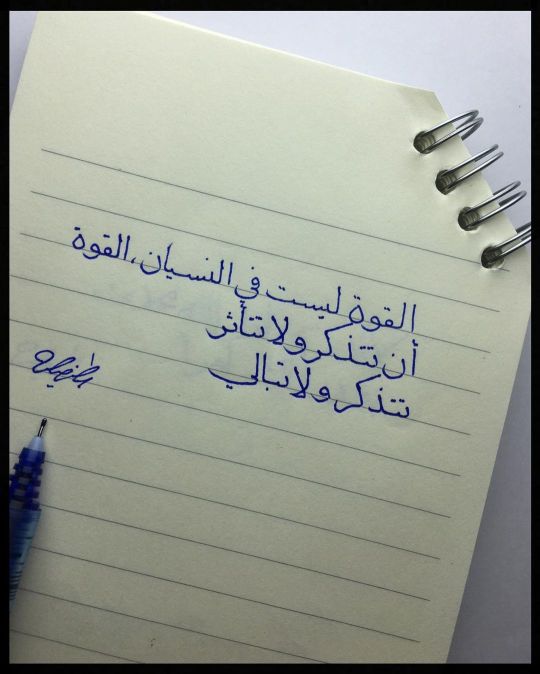 القوة ليست في النسيان، القوة
أن تتذكر ولا تتأثر
تتذكر ولا تبالي